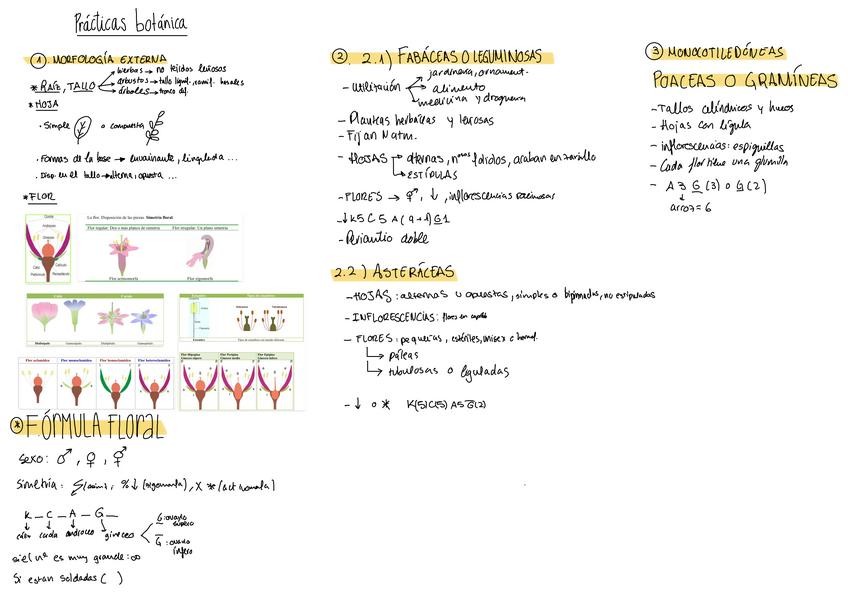 Prácticas botánica
① MORFOLOGÍA EXTERNA
* RAÍZ, TALLO
hierbas → no tejidos leñosos
arbustos → tallo lignif., ramif. basales
árboles → tronco def.
* HOJA
· Simple o compuesta
· Formas de la base → envainante, lingulada ...
· Disp. en el tallo → alterna, opuesta ...
* FLOR
La flor. Disposición de las piezas. Simetría floral.
Flor regular: Dos o más planos de simetría
Flor irregular: Un plano simetría
Flor actinomorfa
Flor zigomorfa
* FÓRMULA FLORAL
sexo: ♂, ♀, ⚥
K _ C _ A _ G _
androceo
gineceo
G: ovario súpero
G: ovario ínfero
si el nº es muy grande: ∞
Si estan soldadas ( )
② 2.1) FABÁCEAS O LEGUMINOSAS
- Utilización
jardinería, ornament.
alimento
medicina y droguera
- Plantas herbáceas y leñosas
- Fijan N atm.
- HOJAS
alternas, nºsos folidos, acaban en zarcillo
ESTÍPULAS
- FLORES → ⚥, ↓, inflorescencias racimosas
- ↓ K5 C5 A (9+1) G1
- Periantio doble
2.2) ASTERÁCEAS
- HOJAS: alternas u opuestas, simples o bipinnadas, no estipuladas
- INFLORESCENCIAS: flores en capítulo
- FLORES: pequeñas, estériles, unisex o hermaf.
páleas
tubulosas o liguladas
- ↓ o * K(5) C(5) A5 G(2)
③ MONOCOTILEDÓNEAS
POACEAS O GRAMÍNEAS
- Tallos cilíndricos y huecos
- Hojas con lígula
- inflorescencias: espiguillas
- Cada flor tiene una glumilla
- A3 G(3) o G(2)
arroz = 6